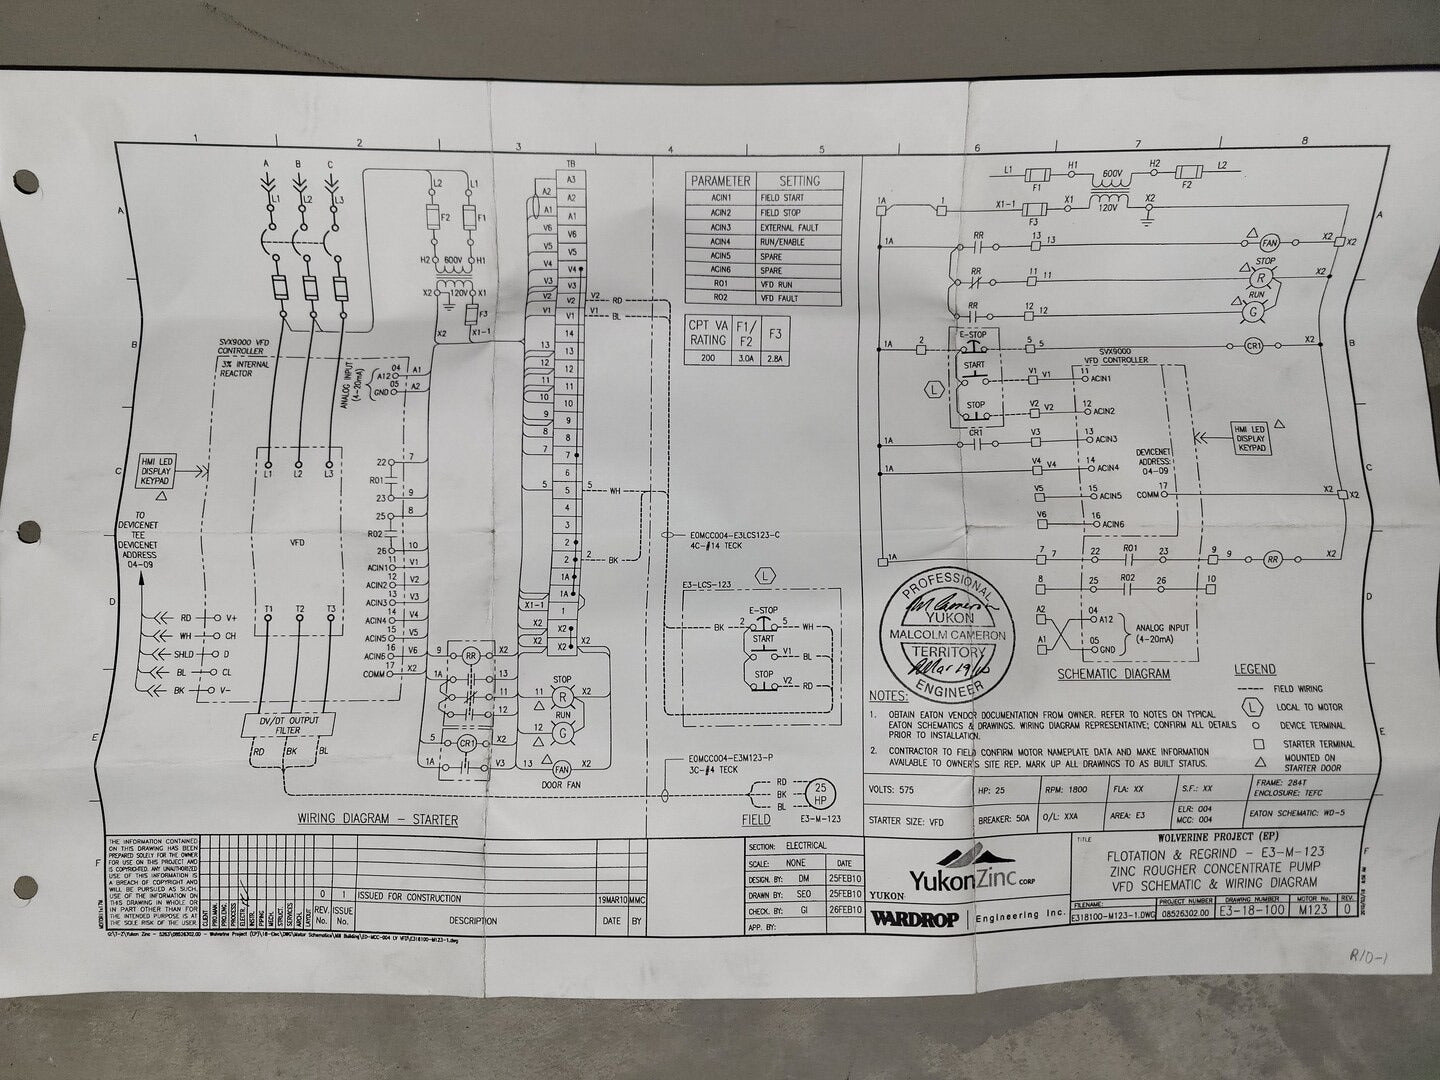 1 2 3 4 5 6 7 8
A B C
L1 L2 L3
L2 L1
F2 F1
H2 600V H1
X2 120V X1
F3
X2 X1-1
SVX9000 VFD
CONTROLLER
3% INTERNAL
REACTOR
ANALOG INPUT
(4-20mA)
04
A12 A1
05
GND A2
HMI LED
DISPLAY
KEYPAD
TO
DEVICENET
TEE
DEVICENET
ADDRESS
04-09
L1 L2 L3
VFD
T1 T2 T3
22 7
RO1
23 9
25 8
RO2
26 10
11
ACIN1 V1
12
ACIN2 V2
13
ACIN3 V3
14
ACIN4 V4
15
ACIN5 V5
16
ACIN6 V6
17
COMM X2
RD V+
WH CH
SHLD D
BL CL
BK V-
DV/DT OUTPUT
FILTER
RD BK BL
9 RR X2
1A 13
11
12
5 CR1 X2
1A V3
TB
A3
A2 A2
A1 A1
V6 V6
V5 V5
V4 V4
V3 V3
V2 V2 V2 RD
V1 V1 V1 BL
14
13 13
12 12
11 11
10 10
9 9
8 8
7 7
6
5 5 5 WH
4
3
2 2 BK
1A
1A
X1-1 1
X2 X2
X2 X2
STOP
11 R X2
RUN
12 G
13 FAN X2
DOOR FAN
WIRING DIAGRAM - STARTER
PARAMETER SETTING
ACIN1 FIELD START
ACIN2 FIELD STOP
ACIN3 EXTERNAL FAULT
ACIN4 RUN/ENABLE
ACIN5 SPARE
ACIN6 SPARE
RO1 VFD RUN
RO2 VFD FAULT
CPT VA RATING F1/F2 F3
200 3.0A 2.8A
E0MCC004-E3LCS123-C
4C-#14 TECK
E3-LCS-123
L
E-STOP
BK 2 5 WH
START
V1 BL
STOP
V2 RD
E0MCC004-E3M123-P
3C-#4 TECK
RD
BK
BL
25
HP
FIELD E3-M-123
L1 F1 H1 600V H2 F2 L2
1A 1 X1-1 F3 X1 120V X2
1A RR 13 13 FAN X2 X2
STOP
RR 11 11 R X2
RUN
RR 12 12 G
E-STOP
1A 2 5 5 CR1 X2
SVX9000
VFD CONTROLLER
START
V1 V1 11 ACIN1
L
STOP
V2 V2 12 ACIN2
1A CR1 V3 13 ACIN3
HMI LED
DISPLAY
KEYPAD
DEVICENET
ADDRESS:
04-09
1A V4 V4 14 ACIN4
V5 15 ACIN5 COMM 17 X2 X2
V6 16 ACIN6
1A 7 7 22 RO1 23 9 9 RR X2
8 25 RO2 26 10
A2 04 A12
A1 05 GND
ANALOG INPUT
(4-20mA)
SCHEMATIC DIAGRAM
PROFESSIONAL
YUKON
MALCOLM CAMERON
TERRITORY
Mar 19/10
ENGINEER
LEGEND
FIELD WIRING
L LOCAL TO MOTOR
DEVICE TERMINAL
STARTER TERMINAL
MOUNTED ON
STARTER DOOR
NOTES:
1. OBTAIN EATON VENDOR DOCUMENTATION FROM OWNER. REFER TO NOTES ON TYPICAL
EATON SCHEMATICS & DRAWINGS. WIRING DIAGRAM REPRESENTATIVE; CONFIRM ALL DETAILS
PRIOR TO INSTALLATION.
2. CONTRACTOR TO FIELD CONFIRM MOTOR NAMEPLATE DATA AND MAKE INFORMATION
AVAILABLE TO OWNER'S SITE REP. MARK UP ALL DRAWINGS TO AS BUILT STATUS.
VOLTS: 575 HP: 25 RPM: 1800 FLA: XX S.F.: XX FRAME: 284T
ENCLOSURE: TEFC
STARTER SIZE: VFD BREAKER: 50A O/L: XXA AREA: E3 ELR: 004
MCC: 004 EATON SCHEMATIC: WD-5
THE INFORMATION CONTAINED
ON THIS DRAWING HAS BEEN
PREPARED SOLELY FOR THE OWNER
FOR USE ON THIS PROJECT AND
IS COPYRIGHTED. ANY UNAUTHORIZED
USE OF THIS INFORMATION IS
A BREACH OF COPYRIGHT AND
WILL BE PURSUED AS SUCH.
USE OF THE INFORMATION ON
THIS DRAWING IN WHOLE OR
IN PART OTHER THAN FOR
THE INTENDED PURPOSE IS AT
THE SOLE RISK OF THE USER.
CLIENT
PROCESS
PIPING
MECH.
STRUCT.
SERVICES
ARCH.
0 1 ISSUED FOR CONSTRUCTION 19MAR10 MMC
REV. No. ISSUE No. DESCRIPTION DATE BY
SECTION: ELECTRICAL
SCALE: NONE DATE
DESIGN. BY: DM 25FEB10
DRAWN BY: SEO 25FEB10
CHECK. BY: GI 26FEB10
APP. BY:
YukonZinc CORP
YUKON
WARDROP Engineering Inc.
TITLE WOLVERINE PROJECT (EP)
FLOTATION & REGRIND - E3-M-123
ZINC ROUGHER CONCENTRATE PUMP
VFD SCHEMATIC & WIRING DIAGRAM
FILENAME: PROJECT NUMBER DRAWING NUMBER MOTOR No. REV.
E318100-M123-1.DWG 08526302.00 E3-18-100 M123 0
R10-1